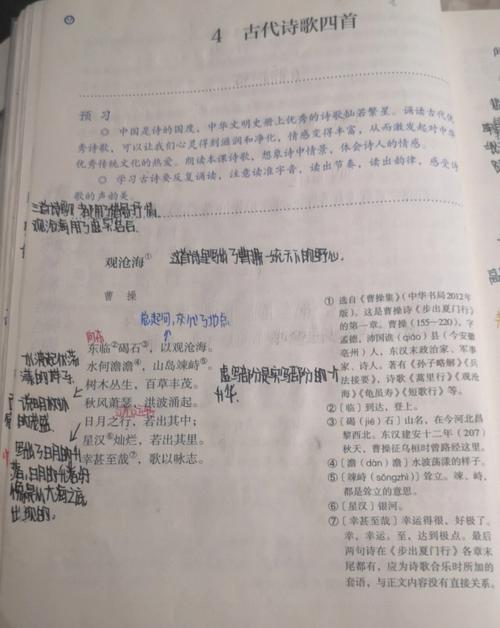 4 古代诗歌四首
预 习
◎ 中国是诗的国度，中华文明史册上优秀的诗歌灿若繁星。诵读古代优
秀诗歌，可以让我们心灵得到滋润和净化，情感变得丰富，从而激发起对中华
优秀传统文化的热爱。朗读本课诗歌，想象诗中情景，体会诗人的情感。
◎ 学习古诗要反复诵读，注意读准字音，读出节奏，读出韵律，感受诗
歌的声韵美。
观沧海①
这首诗写出了曹操一统天下的野心.
曹 操
总起词,交代了地点.
东临②碣石③，以观沧海。
水何澹澹④，山岛竦峙⑤。
树木丛生，百草丰茂。
秋风萧瑟，洪波涌起。
日月之行，若出其中；
星汉⑥灿烂，若出其里。
幸甚至哉⑦，歌以咏志。
水波起伏荡
写出了日月的升
落,日月的光落好
像是从大海之底
出现的.
① 选自《曹操集》（中华书局2012年
版）。这是曹操诗《步出夏门行》
的第一章。曹操（155—220），字
孟德，沛国谯（qiáo）县（今安徽
亳州）人，东汉末政治家、军事
家、诗人。著有《孙子略解》《兵
法接要》，诗歌《蒿里行》《观沧
海》《龟虽寿》《短歌行》等。
② 〔临〕到达，登上。
③ 〔碣（jié）石〕山名，在今河北昌
黎西北。东汉建安十二年（207）
秋天，曹操征乌桓时曾路经这里。
④ 〔澹（dàn）澹〕水波荡漾的样子。
⑤ 〔竦峙（sǒngzhì）〕耸立。竦、峙，
都是耸立的意思。
⑥ 〔星汉〕银河。
⑦ 〔幸甚至哉〕幸运得很，好极了。
幸，幸运。至，达到极点。最后
两句诗在《步出夏门行》各章末
尾都有，应为诗歌合乐时所加的
套语，与正文内容没有直接关系。